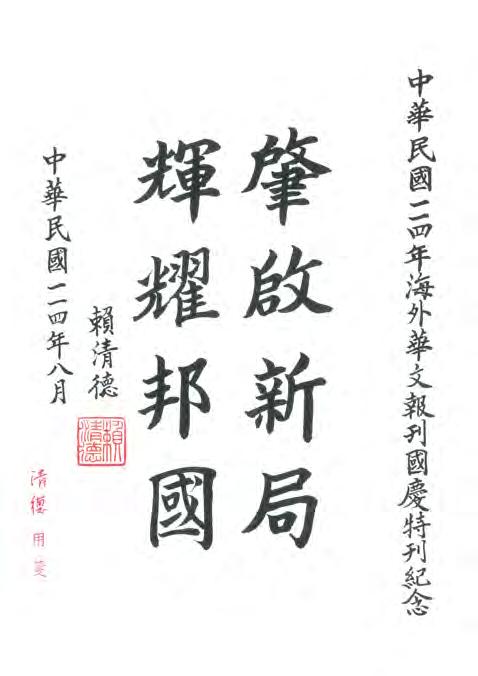 中華民國一一四年海外華文報刊國慶特刊紀念
肇啟新局
輝耀邦國
賴清德
賴清德
中華民國一一四年八月
清德用箋